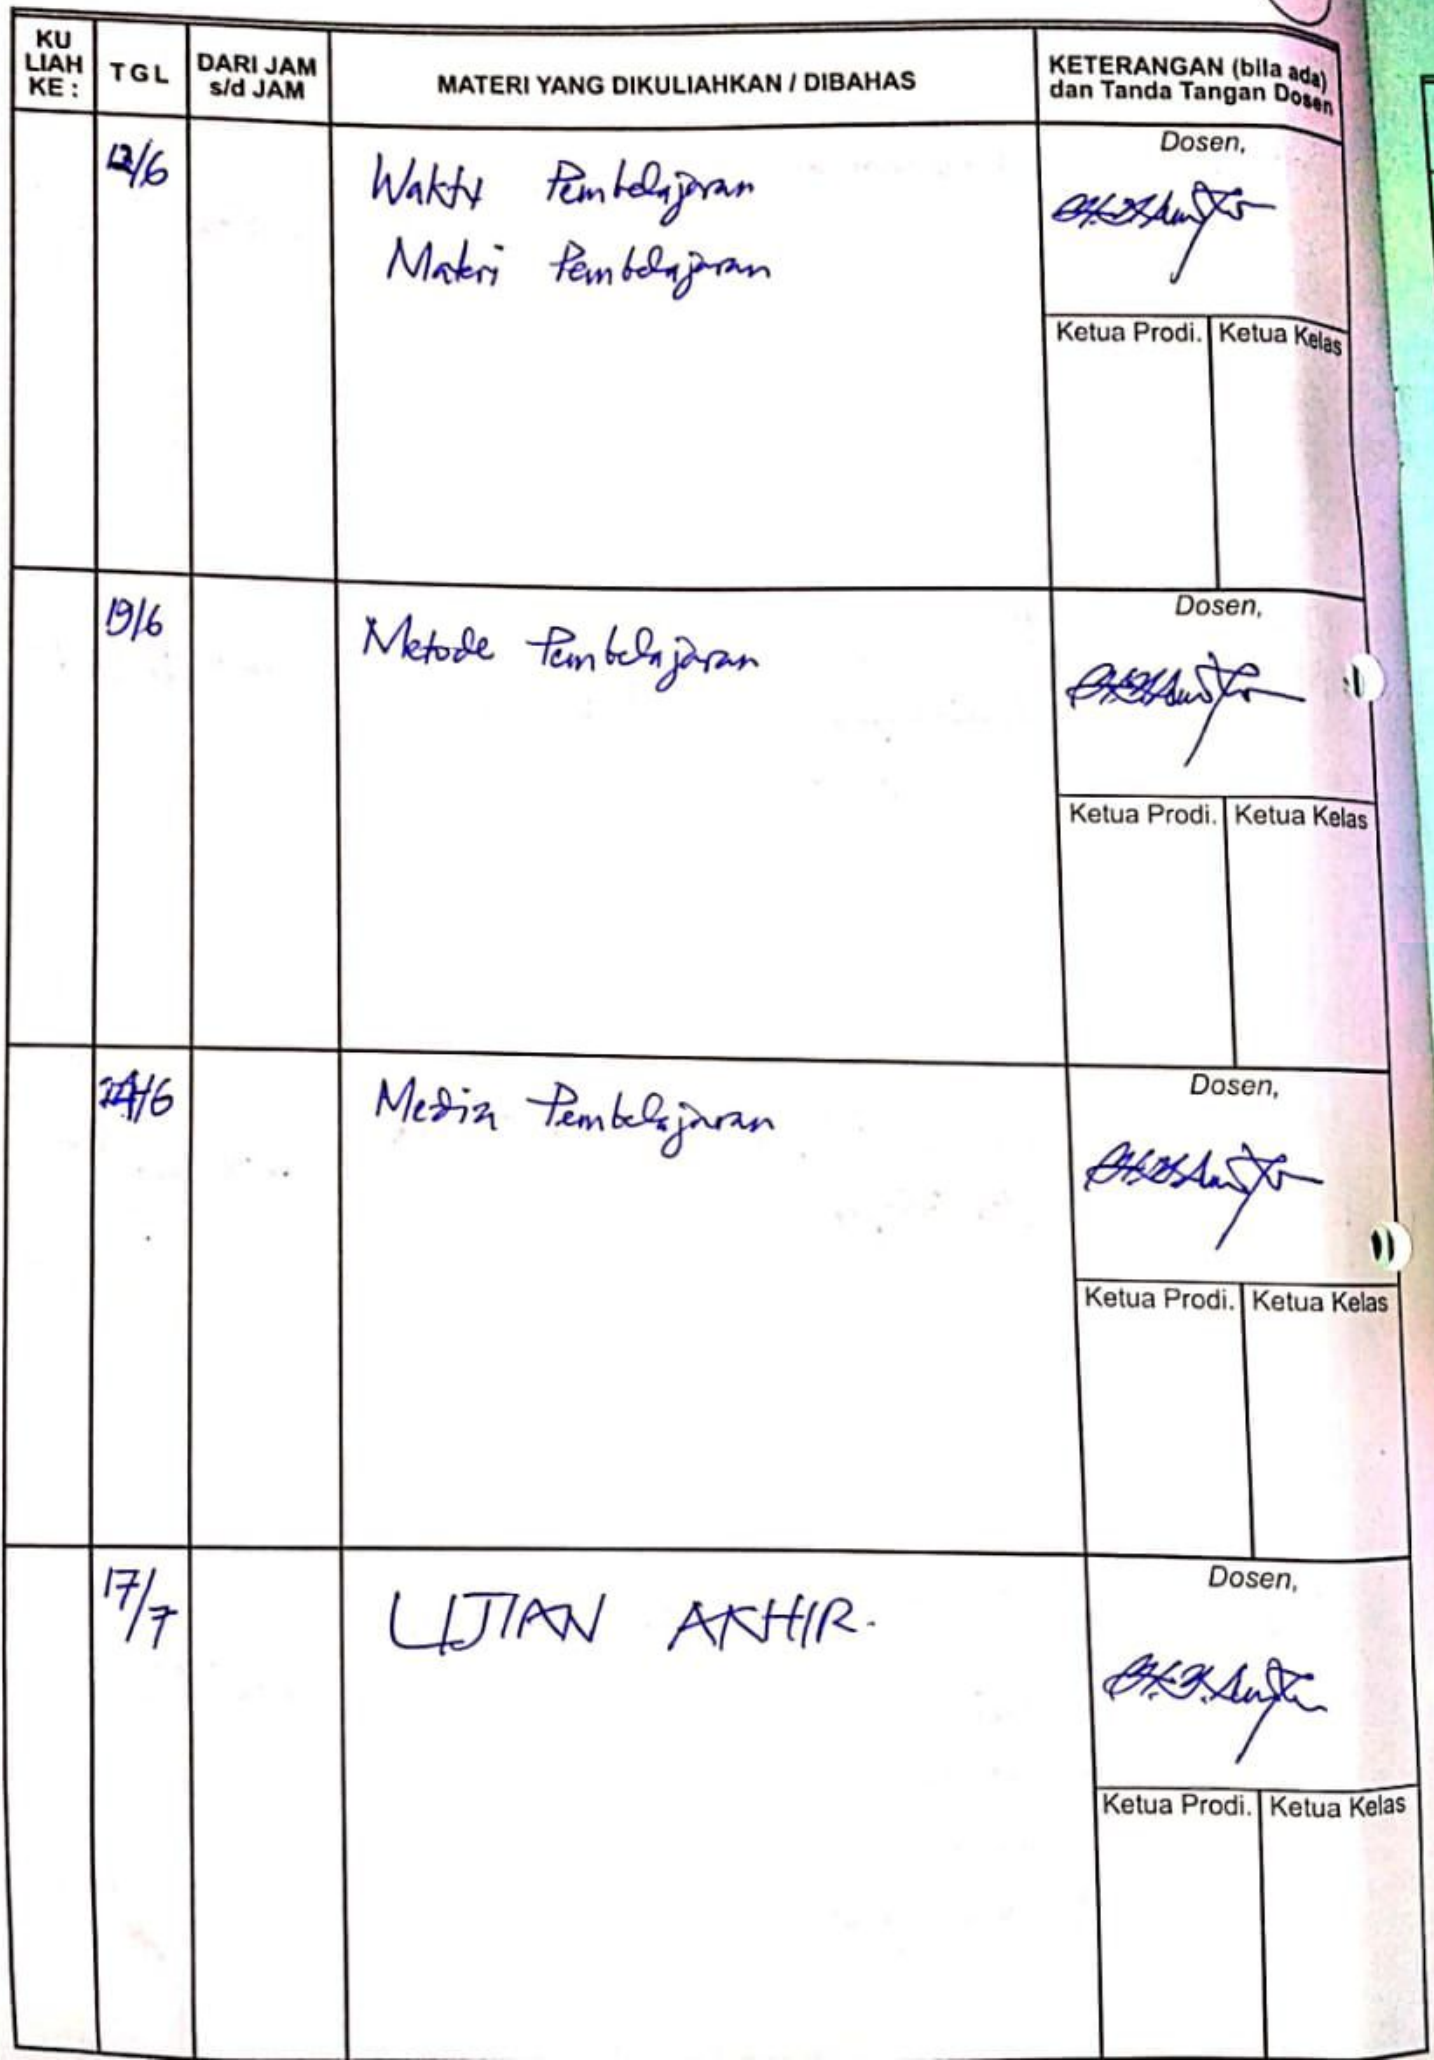 KU
LIAH
KE :
TGL
DARI JAM
s/d JAM
MATERI YANG DIKULIAHKAN / DIBAHAS
KETERANGAN (bila ada)
dan Tanda Tangan Dosen
12/6
Waktu Pembelajaran
Materi Pembelajaran
Dosen,
Ketua Prodi. Ketua Kelas
19/6
Metode Pembelajaran
Dosen,
Ketua Prodi. Ketua Kelas
Media Pembelajaran
Dosen,
Ketua Prodi. Ketua Kelas
17/7
UJIAN AKHIR.
Dosen,
Ketua Prodi. Ketua Kelas